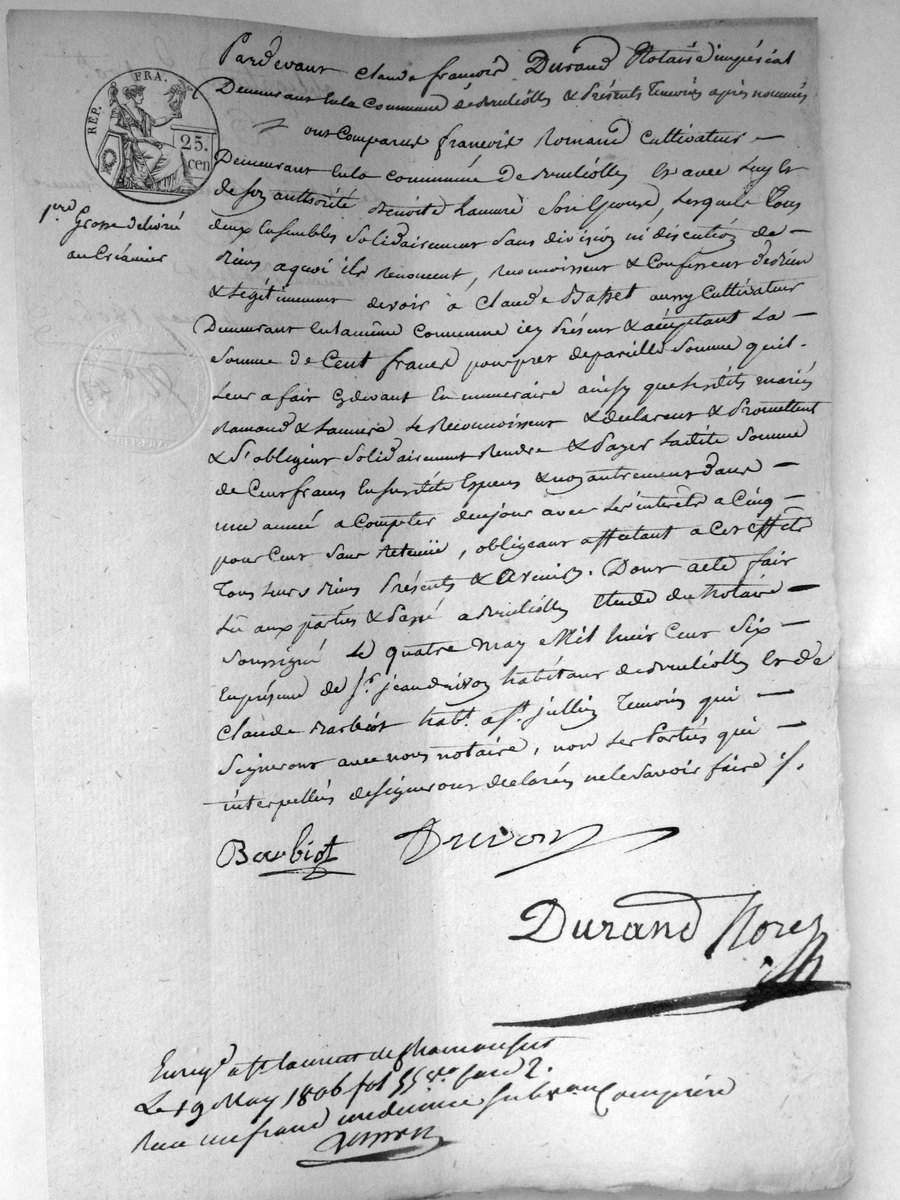 RÉP. FRA.
25.
cen
1ere
Grosse delivré
au Créancier
Pardevant Claude françois Durand Notaire impérial
Demeurant en la Commune de Brulliolles & Présents Temoins après nommés
ont Comparus françois Romand Cultivateur
Demeurant en la commune de Brulliolles Et avec luy Et
de son authorité Benoite Lamure Son Epouse, Lesquels Tous
deux Ensembles Solidairement Sans division ni discution de
Biens aquoi ils Renoncent, Reconnoissent & Confessent Bedrien
& Légitimement devoir à Claude Basset aussy Cultivateur
Demeurant en la même Commune icy Présent & acceptant La
Somme de Cent francs pour pret depareille Somme quil
Leur a fait cydevant En numeraire ainsy que lesdits mariés
Romand & Lamure Le Reconnoissent & declarent & Promettent
& S'obligent Solidairement Rendre & Payer Ladite Somme
de Cent francs En susdite Especes & non autrement dans
une année a Compter de ce jour avec Les interets a Cinq
pour Cent Sans Retenüe, obligeant affectant a Cet Effets
Tous Leurs Biens Présents & Avenirs. Dont acte fait
Lu aux parties & Passé a Brulliolles Etude du Notaire
Soussigné Le quatre may Mil huit Cent Six
En présence de Sr. jean drivon habitant de Brulliolles Et de
Claude Barbiot habt. a St. jullien Temoins qui
Signeront avec nous notaire, non Les Parties qui
interpellés de signer ont declarés ne le Savoir faire ./.
Barbiot Drivon
Durand Nore
Enregé a St Laurent de Chamousset
Le 19 May 1806 fol 55 Vo Case 2.
Recu un franc un decime Subvon Comprise